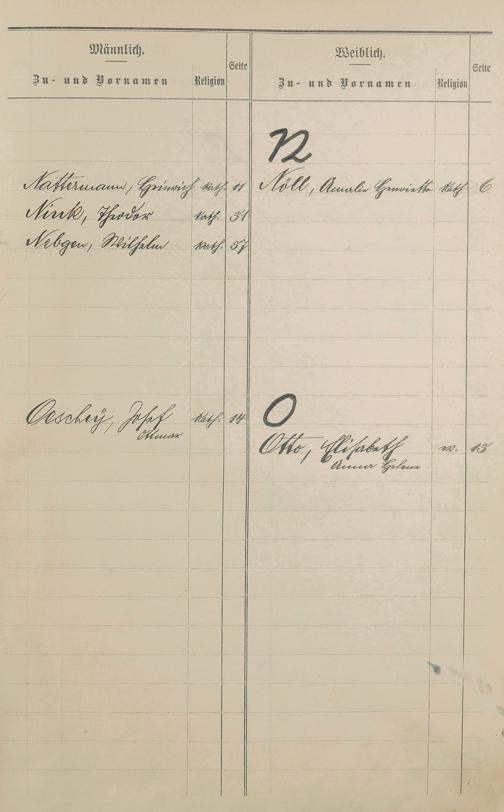 Männlich.
Zu- und Vornamen Religion Seite
Weiblich.
Zu- und Vornamen Religion Seite
N
Nattermann, Heinrich kath. 11
Nöll, Amalie Henriette kath. 6
Nink, Theodor kath. 51
Nebgen, Wilhelm kath. 57
O
Oeschey, Josef kath. 14
Ottmar
Otto, Elisabeth ev. 15
Anna Helene